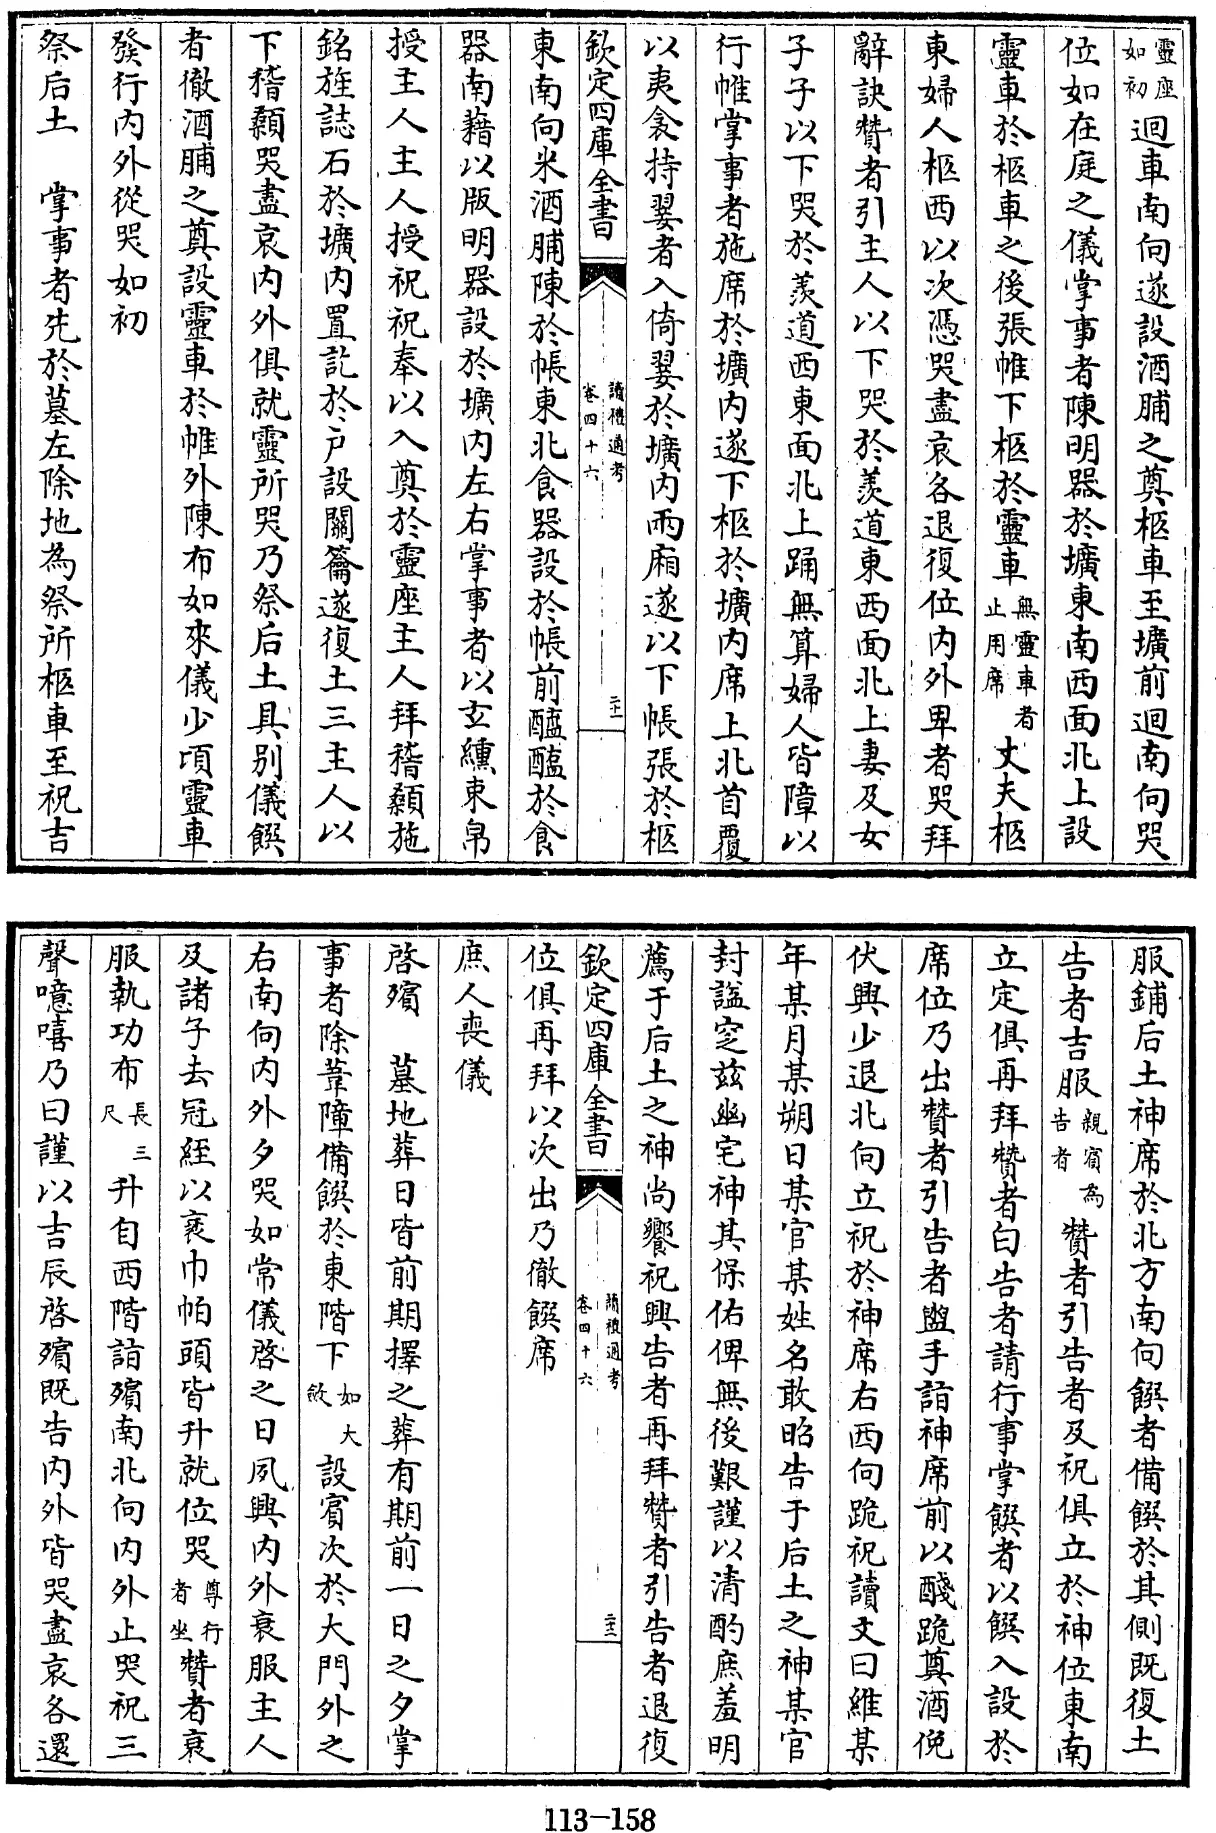 靈座如初迴車南向遂設酒脯之奠柩車至壙前迴南向哭
位如在庭之儀掌事者陳明器於壙東南西面北上設
靈車於柩車之後張帷下柩於靈車無靈車者止用席丈夫柩
東婦人柩西以次憑哭盡哀各退復位內外卑者哭拜
辭訣贊者引主人以下哭於羨道東西面北上妻及女
子子以下哭於羨道西東面北上踊無算婦人皆障以
行帷掌事者施席於壙內遂下柩於壙內席上北首覆
以夷衾持翣者入倚翣於壙內兩廂遂以下帳張於柩
欽定四庫全書
讀禮通考
卷四十六
二十一
東南向米酒脯陳於帳東北食器設於帳前醯醢於食
器南藉以版明器設於壙內左右掌事者以玄纁束帛
授主人主人授祝祝奉以入奠於靈座主人拜稽顙施
銘旌誌石於壙內置訖於戶設關籥遂復土三主人以
下稽顙哭盡哀內外俱就靈所哭乃祭后土具別儀饌
者徹酒脯之奠設靈車於帷外陳布如來儀少頃靈車
發行內外從哭如初
祭后土　掌事者先於墓左除地為祭所柩車至祝吉
服鋪后土神席於北方南向饌者備饌於其側既復土
告者吉服親賓為告者贊者引告者及祝俱立於神位東南
立定俱再拜贊者白告者請行事掌饌者以饌入設於
席位乃出贊者引告者盥手詣神席前以醆跪奠酒俛
伏興少退北向立祝於神席右西向跪祝讀文曰維某
年某月某朔日某官某姓名敢昭告于后土之神某官
封諡窆茲幽宅神其保佑俾無後艱謹以清酌庶羞明
薦于后土之神尚饗祝興告者再拜贊者引告者退復
欽定四庫全書
讀禮通考
卷四十六
二十二
位俱再拜以次出乃徹饌席
庶人喪儀
啓殯　墓地葬日皆前期擇之葬有期前一日之夕掌
事者除葦障備饌於東階下如大斂設賓次於大門外之
右南向內外夕哭如常儀啓之日夙興內外衰服主人
及諸子去冠絰以衺巾帕頭皆升就位哭尊行者坐贊者衰
服執功布長三尺升自西階詣殯南北向內外止哭祝三
聲噫嘻乃曰謹以吉辰啓殯既告內外皆哭盡哀各還
113-158